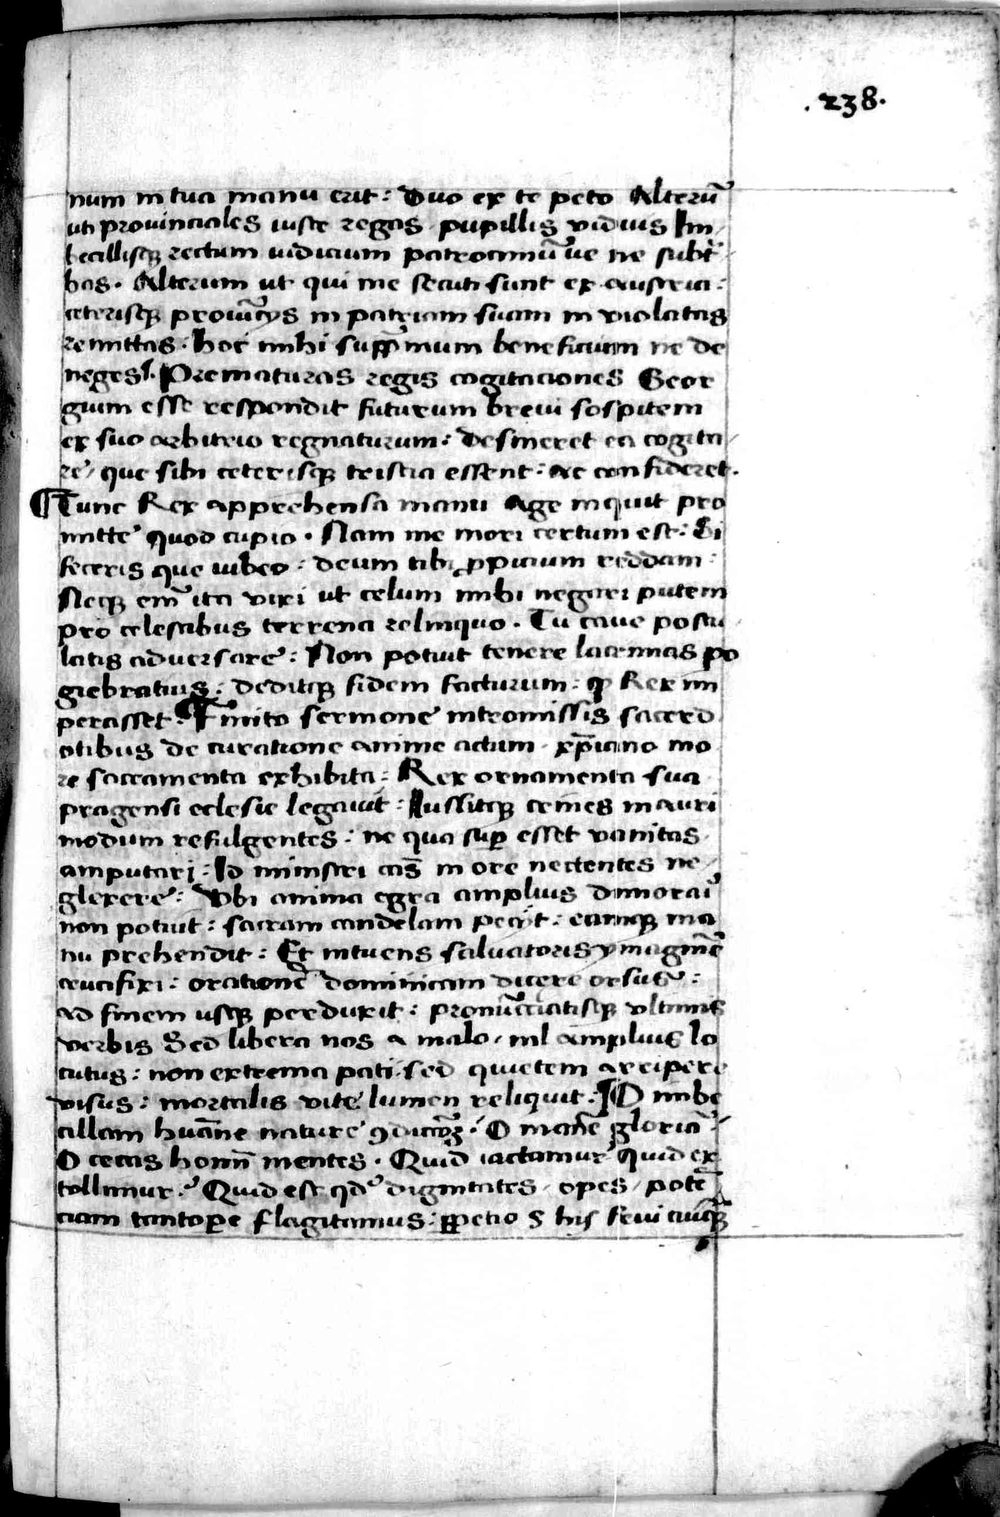 .238.
num in tua manu erit : Duo ex te peto Alterū
uti provinciales iuste regas pupillis viduis Im
becillisq̨ rectum iudicium patrociniū ue ne subt̄
has . Alterum ut qui me secuti sunt ex austria :
ceterisq̨ proviц̄ijs in patriam suam inviolatas
remittas . hoc mihi supp̄mum beneficium ne de
neges . Prematuras regis cogitaciones Geor
gium esse respondit futurum brevi sospitem
ex suo arbitrio regnaturum : desineret ea cogita
re , que sibi ceterisq̨ tristia essent : ac confideret .
¶ Tunc Rex apprehensa manu Age inquit pro
mitte quod cupio . Nam me mori certum est : Si
feceris que iubeo : deum tibi propicium reddam :
Neq̨ em̄ ita vixi ut celum mihi negari putem
pro celestibus terrena relinquo . Tu cave postu
latis adversare : Non potuit tenere lacrimas po
giebratius : deditq̨ fidem facturum : q̨ Rex im
perasset . Finito sermone intromissis sacerd
otibus de curatione anime actum . xp̄iano mo
re sacramenta exhibita : Rex ornamenta sua
pragensi eclesie legavit : Iussitq̨ crines in auri
modum refulgentes : ne qua sup̄ esset vanitas
amputari : Id ministri cas̄ in ore nectentes ne
glexere : Ubi anima egra amplius dimorari
non potuit : sacram candelam pecijt : eamq̨ ma
nu prehendit : Et intuens salvatoris ymaginē
crucifixi : orationē dominicam dicere orsus :
ad finem usq̨ perduxit : pronūcciatisq̨ ultimis
verbis Sed libera nos a malo , nil amplius lo
cutus : non extrema pati sed quietem accipere
visus : mortalis vite lumen reliquit : ¶ O imbe
cillam huāne nature 9dicoꝫ : O inanē gloriā :
O cecas homī mentes . Quid iactamur quid ex
tollimur : Quid est qd dignitates , opes , potē
ciam tantope flagitamus : his sevi cuiq̨